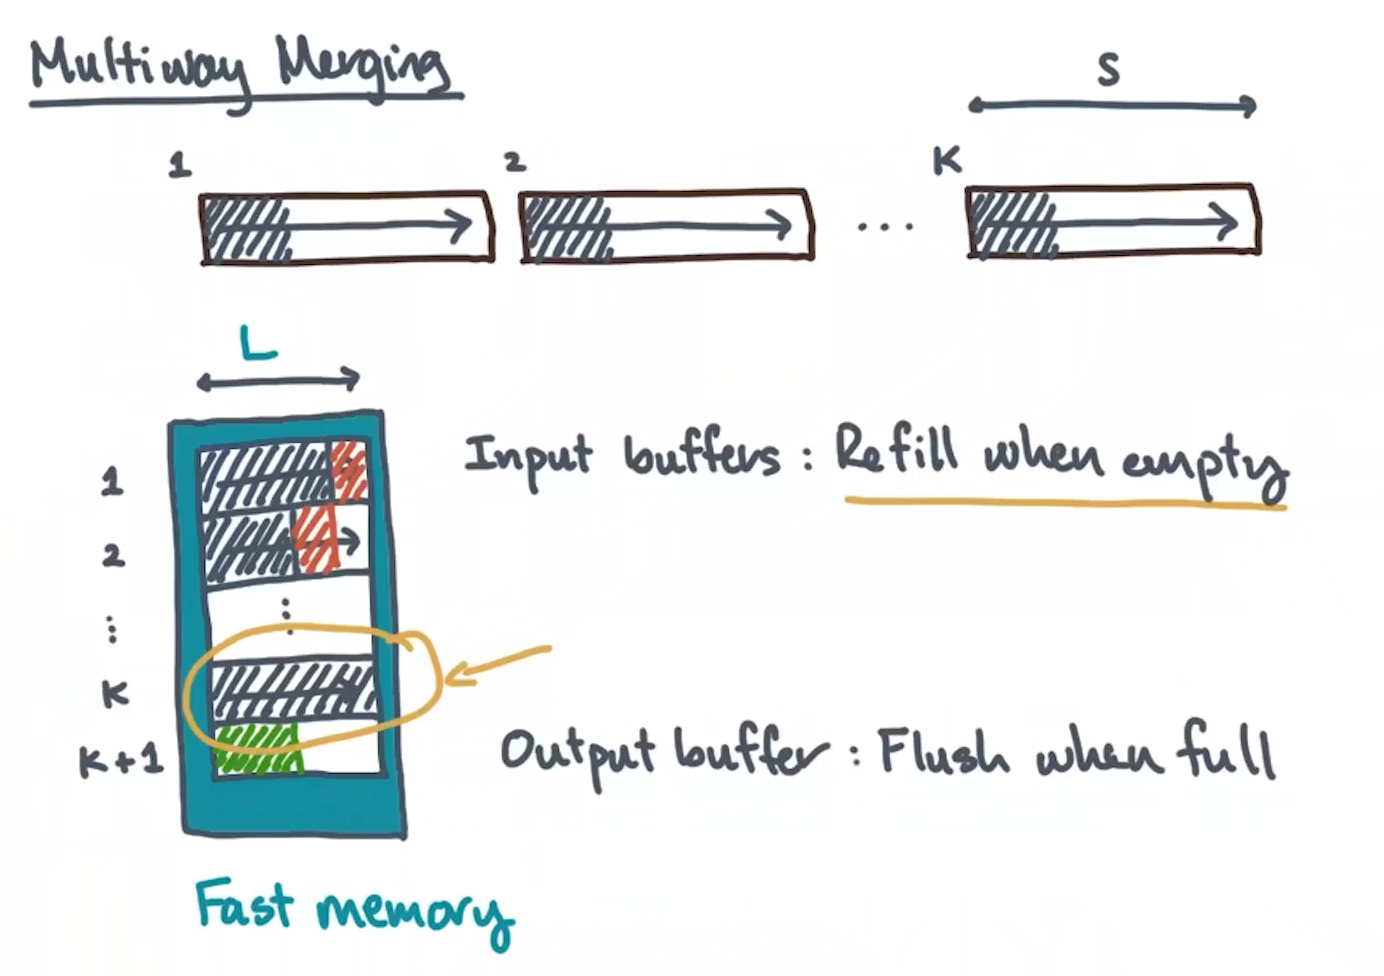 Multiway Merging
S
1 2 ... K
L
1
Input buffers : Refill when empty
2
⋮
K
K+1
Output buffer : Flush when full
Fast memory